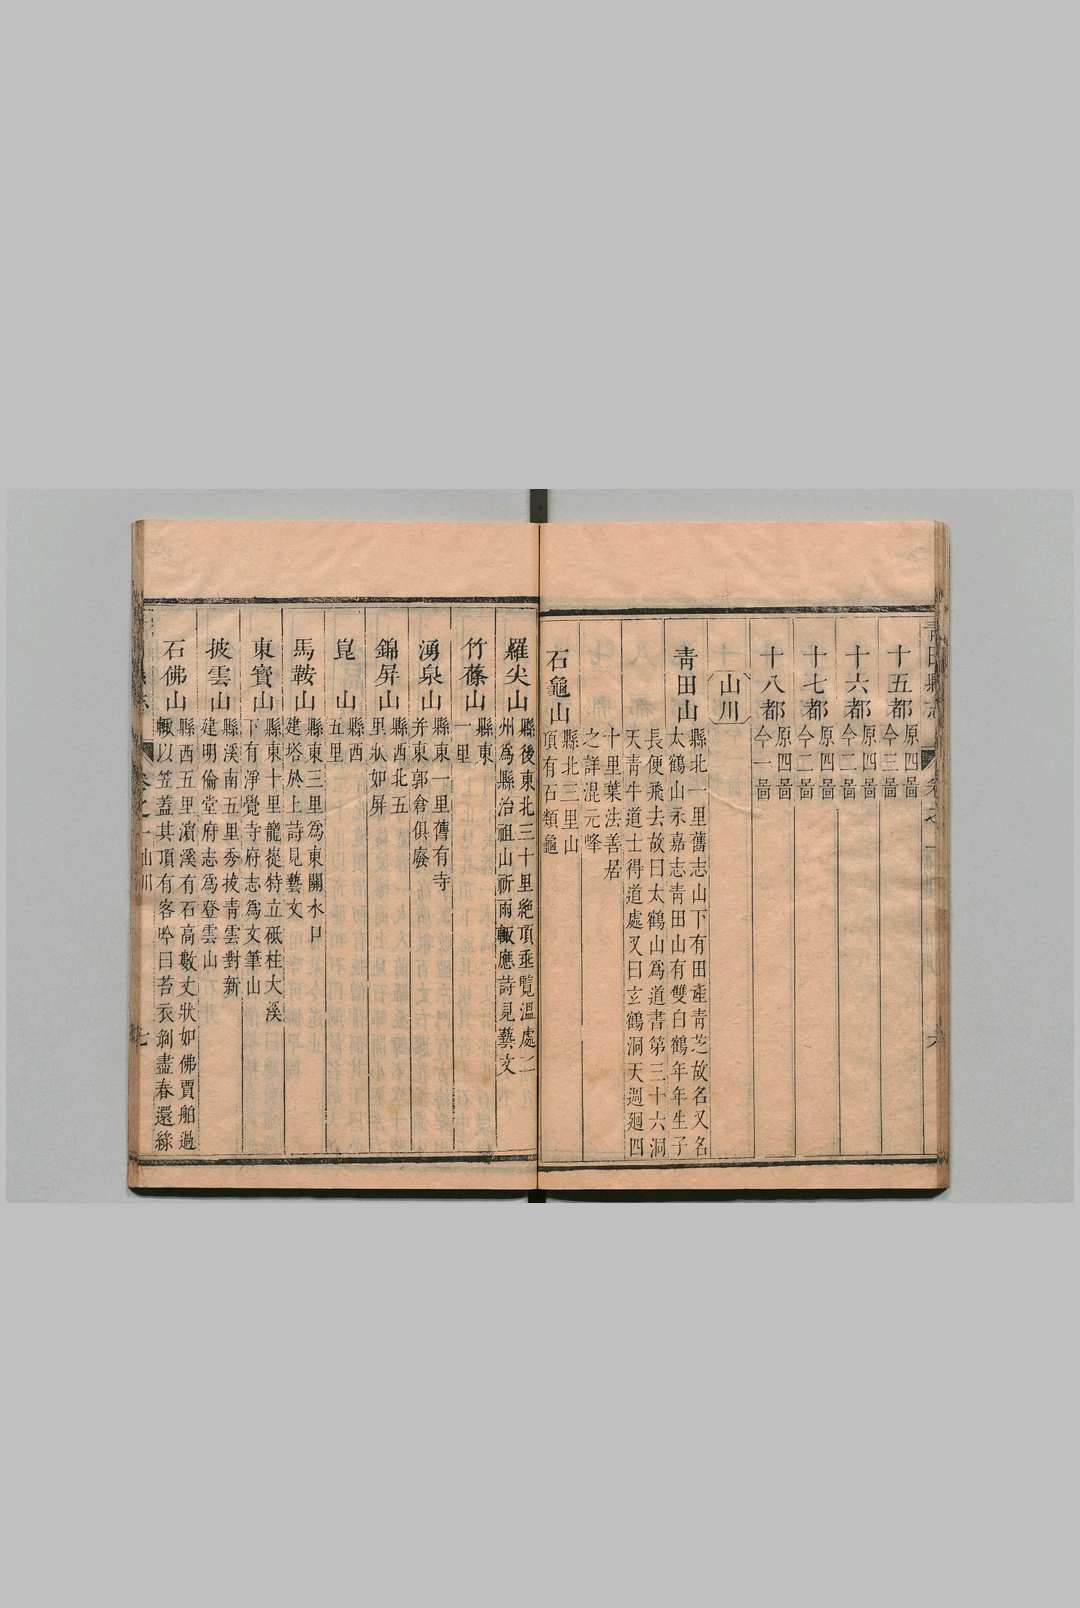 青田縣志
卷之一
六
十五都
原四啚
今三啚
十六都
原四啚
今二啚
十七都
原四啚
今二啚
十八都
原四啚
今一啚
山川
靑田山
縣北一里舊志山下有田產青芝故名又名
太鶴山永嘉志靑田山有雙白鶴年年生子
長便飛去故曰太鶴山爲道書第三十六洞
天靑牛道士得道處又曰玄鶴洞天週廻四
十里葉法善居
之詳混元峰
石龜山
縣北三里山
頂有石類龜
羅尖山
縣後東北三十里絶頂垂覽溫處二
州爲縣治祖山祈雨輒應詩見藝文
竹蓧山
縣東
一里
湧泉山
縣東一里舊有寺
并東郭倉俱廢
錦屏山
縣西北五
里狀如屏
崑山
縣西
五里
馬鞍山
縣東三里爲東關水口
建塔於上詩見藝文
東寳山
縣東十里巃嵸特立砥柱大溪
下有淨覺寺府志爲文筆山
披雲山
縣溪南五里秀拔靑雲對新
建明倫堂府志爲登雲山
石佛山
縣西五里濵溪有石高數丈狀如佛賈舶過
輒以笠蓋其頂有客吟曰苔衣剥盡春還綠
卷之一 山川
七